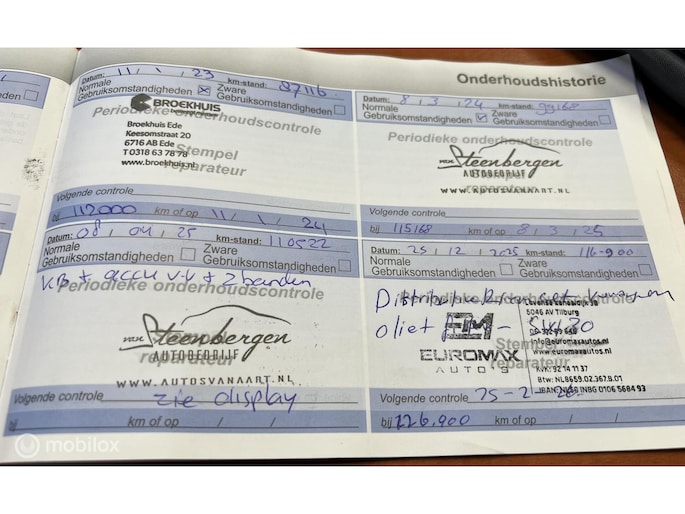 Onderhoudshistorie
Datum: 11 / 1 / 23 km-stand: 87116
Normale Gebruiksomstandigheden Zware Gebruiksomstandigheden
Periodieke onderhoudscontrole
BROEKHUIS
Broekhuis Ede
Keesomstraat 20
6716 AB Ede
T 0318 63 78 78
www.broekhuis.nl
Stempel reparateur
Volgende controle
bij 112000 km of op 11 / 1 / 24
Datum: 8 / 3 / 24 km-stand: 99168
Normale Gebruiksomstandigheden Zware Gebruiksomstandigheden
Periodieke onderhoudscontrole
Stempel reparateur
Steenbergen
AUTOBEDRIJF
WWW.AUTOSVANAART.NL
Volgende controle
bij 115168 km of op 8 / 3 / 25
Datum: 08 / 04 / 25 km-stand: 110522
Normale Gebruiksomstandigheden Zware Gebruiksomstandigheden
accu + 2 banden
Periodieke onderhoudscontrole
Stempel reparateur
Steenbergen
AUTOBEDRIJF
WWW.AUTOSVANAART.NL
Volgende controle zie display
bij km of op / /
Datum: 25 / 12 / 2025 km-stand: 116-900
Normale Gebruiksomstandigheden Zware Gebruiksomstandigheden
Periodieke onderhoudscontrole
5046 AV Tilburg
EM
EUROMAX
AUTO'S
Stempel reparateur
info@euromaxautos.nl
www.euromaxautos.nl
KvK: 92 14 11 37
Btw: NL8659.02.367.B.01
Volgende controle
bij 126.900 km of op / /
mobilox